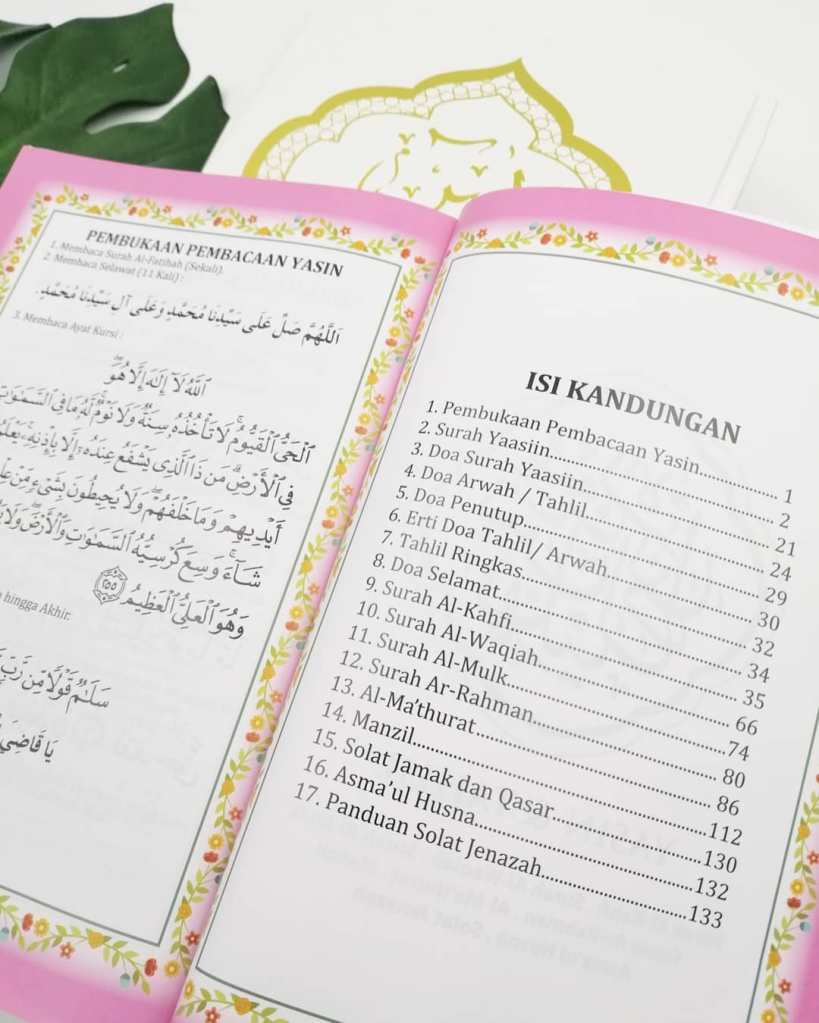 PEMBUKAAN PEMBACAAN YASIN
1. Membaca Surah Al-Fatihah (Sekali).
2. Membaca Selawat (11 Kali) :
اَللّٰهُمَّ صَلِّ عَلَى سَيِّدِنَا مُحَمَّدٍ وَعَلَى آلِ سَيِّدِنَا مُحَمَّدٍ.
3. Membaca Ayat Kursi :
ٱللَّهُ لَآ إِلَٰهَ إِلَّا هُوَ
ٱلْحَىُّ ٱلْقَيُّومُ لَا تَأْخُذُهُۥ سِنَةٌ وَلَا نَوْمٌ لَّهُۥ مَا فِى ٱلسَّمَٰوَٰتِ
فِى ٱلْأَرْضِ مَن ذَا ٱلَّذِى يَشْفَعُ عِندَهُۥٓ إِلَّا بِإِذْنِهِۦ يَعْلَمُ
أَيْدِيهِمْ وَمَا خَلْفَهُمْ وَلَا يُحِيطُونَ بِشَىْءٍ مِّنْ
شَآءَ وَسِعَ كُرْسِيُّهُ ٱلسَّمَٰوَٰتِ وَٱلْأَرْضَ وَلَا
وَهُوَ ٱلْعَلِىُّ ٱلْعَظِيمُ ٢٥٥
hingga Akhir.
سَلَٰمٌ قَوْلًا مِّن رَّبٍّ
يَا قَاضِيَ
ISI KANDUNGAN
1. Pembukaan Pembacaan Yasin.................. 1
2. Surah Yaasiin.................. 2
3. Doa Surah Yaasiin.................. 21
4. Doa Arwah / Tahlil.................. 24
5. Doa Penutup.................. 29
6. Erti Doa Tahlil/ Arwah.................. 30
7. Tahlil Ringkas.................. 32
8. Doa Selamat.................. 34
9. Surah Al-Kahfi.................. 35
10. Surah Al-Waqiah.................. 66
11. Surah Al-Mulk..................74
12. Surah Ar-Rahman.................. 80
13. Al-Ma'thurat.................. 86
14. Manzil..................112
15. Solat Jamak dan Qasar..................130
16. Asma'ul Husna..................132
17. Panduan Solat Jenazah..................133